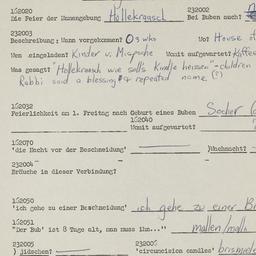 162020 232002
Die Feier der Namengebung Hollekraasch Bei Buben auch?
232003
Beschreibung: Wann vorgekommen? 3 wks Wo? House
Wen eingeladen? Kinder u. Mispoche Womit aufgewartet? Kaffee
Was gesagt? "Hollekrasch wie solls Kindje heissen" - children
Rabbi said a blessing & repeated name (?)
162032
Feierlichkeit am 1. Freitag nach Geburt eines Buben Socher
162040
Womit aufgewartet?
162070
'die Nacht vor der Beschneidung' )Wachnacht?
232004
Bräuche in dieser Verbindung?
162050
'ich gehe zu einer Beschneidung' ich gehe zu einer
162051
"Der Bub' ist 8 Tage alt, nun muss ihn..." mallen/
232005 232006
) jüdschen? 'circumcision candles'